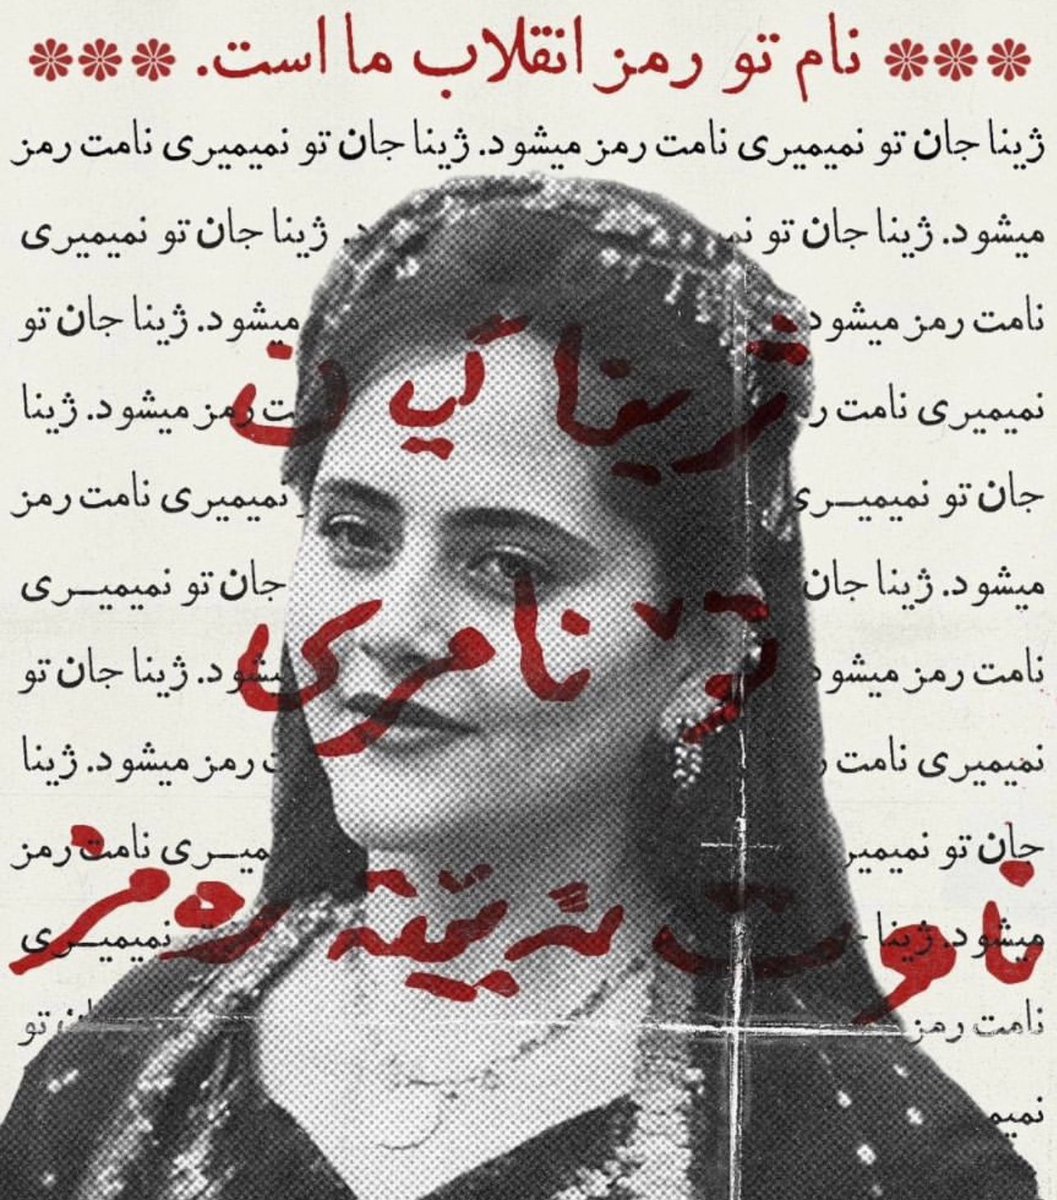 نام تو رمز انقلاب ما است.
ژینا جان تو نمیمیری نامت رمز میشود. ژینا جان تو نمیمیری نامت رمز
میشود. ژینا جان تو ژینا جان تو نمیمیری
نامت رمز میشود میشود. ژینا جان تو
ژینا گیان
نمیمیری نامت رمز میشود. ژینا
جان تو نمیمیــری نمیمیری نامت رمز
میشود. ژینا جان جان تو نمیمیــری
تۆ نامری
نامت رمز میشود میشود. ژینا جان تو
نمیمیری نامت رمز میشود. ژینا
جان تو نامت رمز
ناوت
میشود. ژینا نمیمیــری
نامت رمز تو